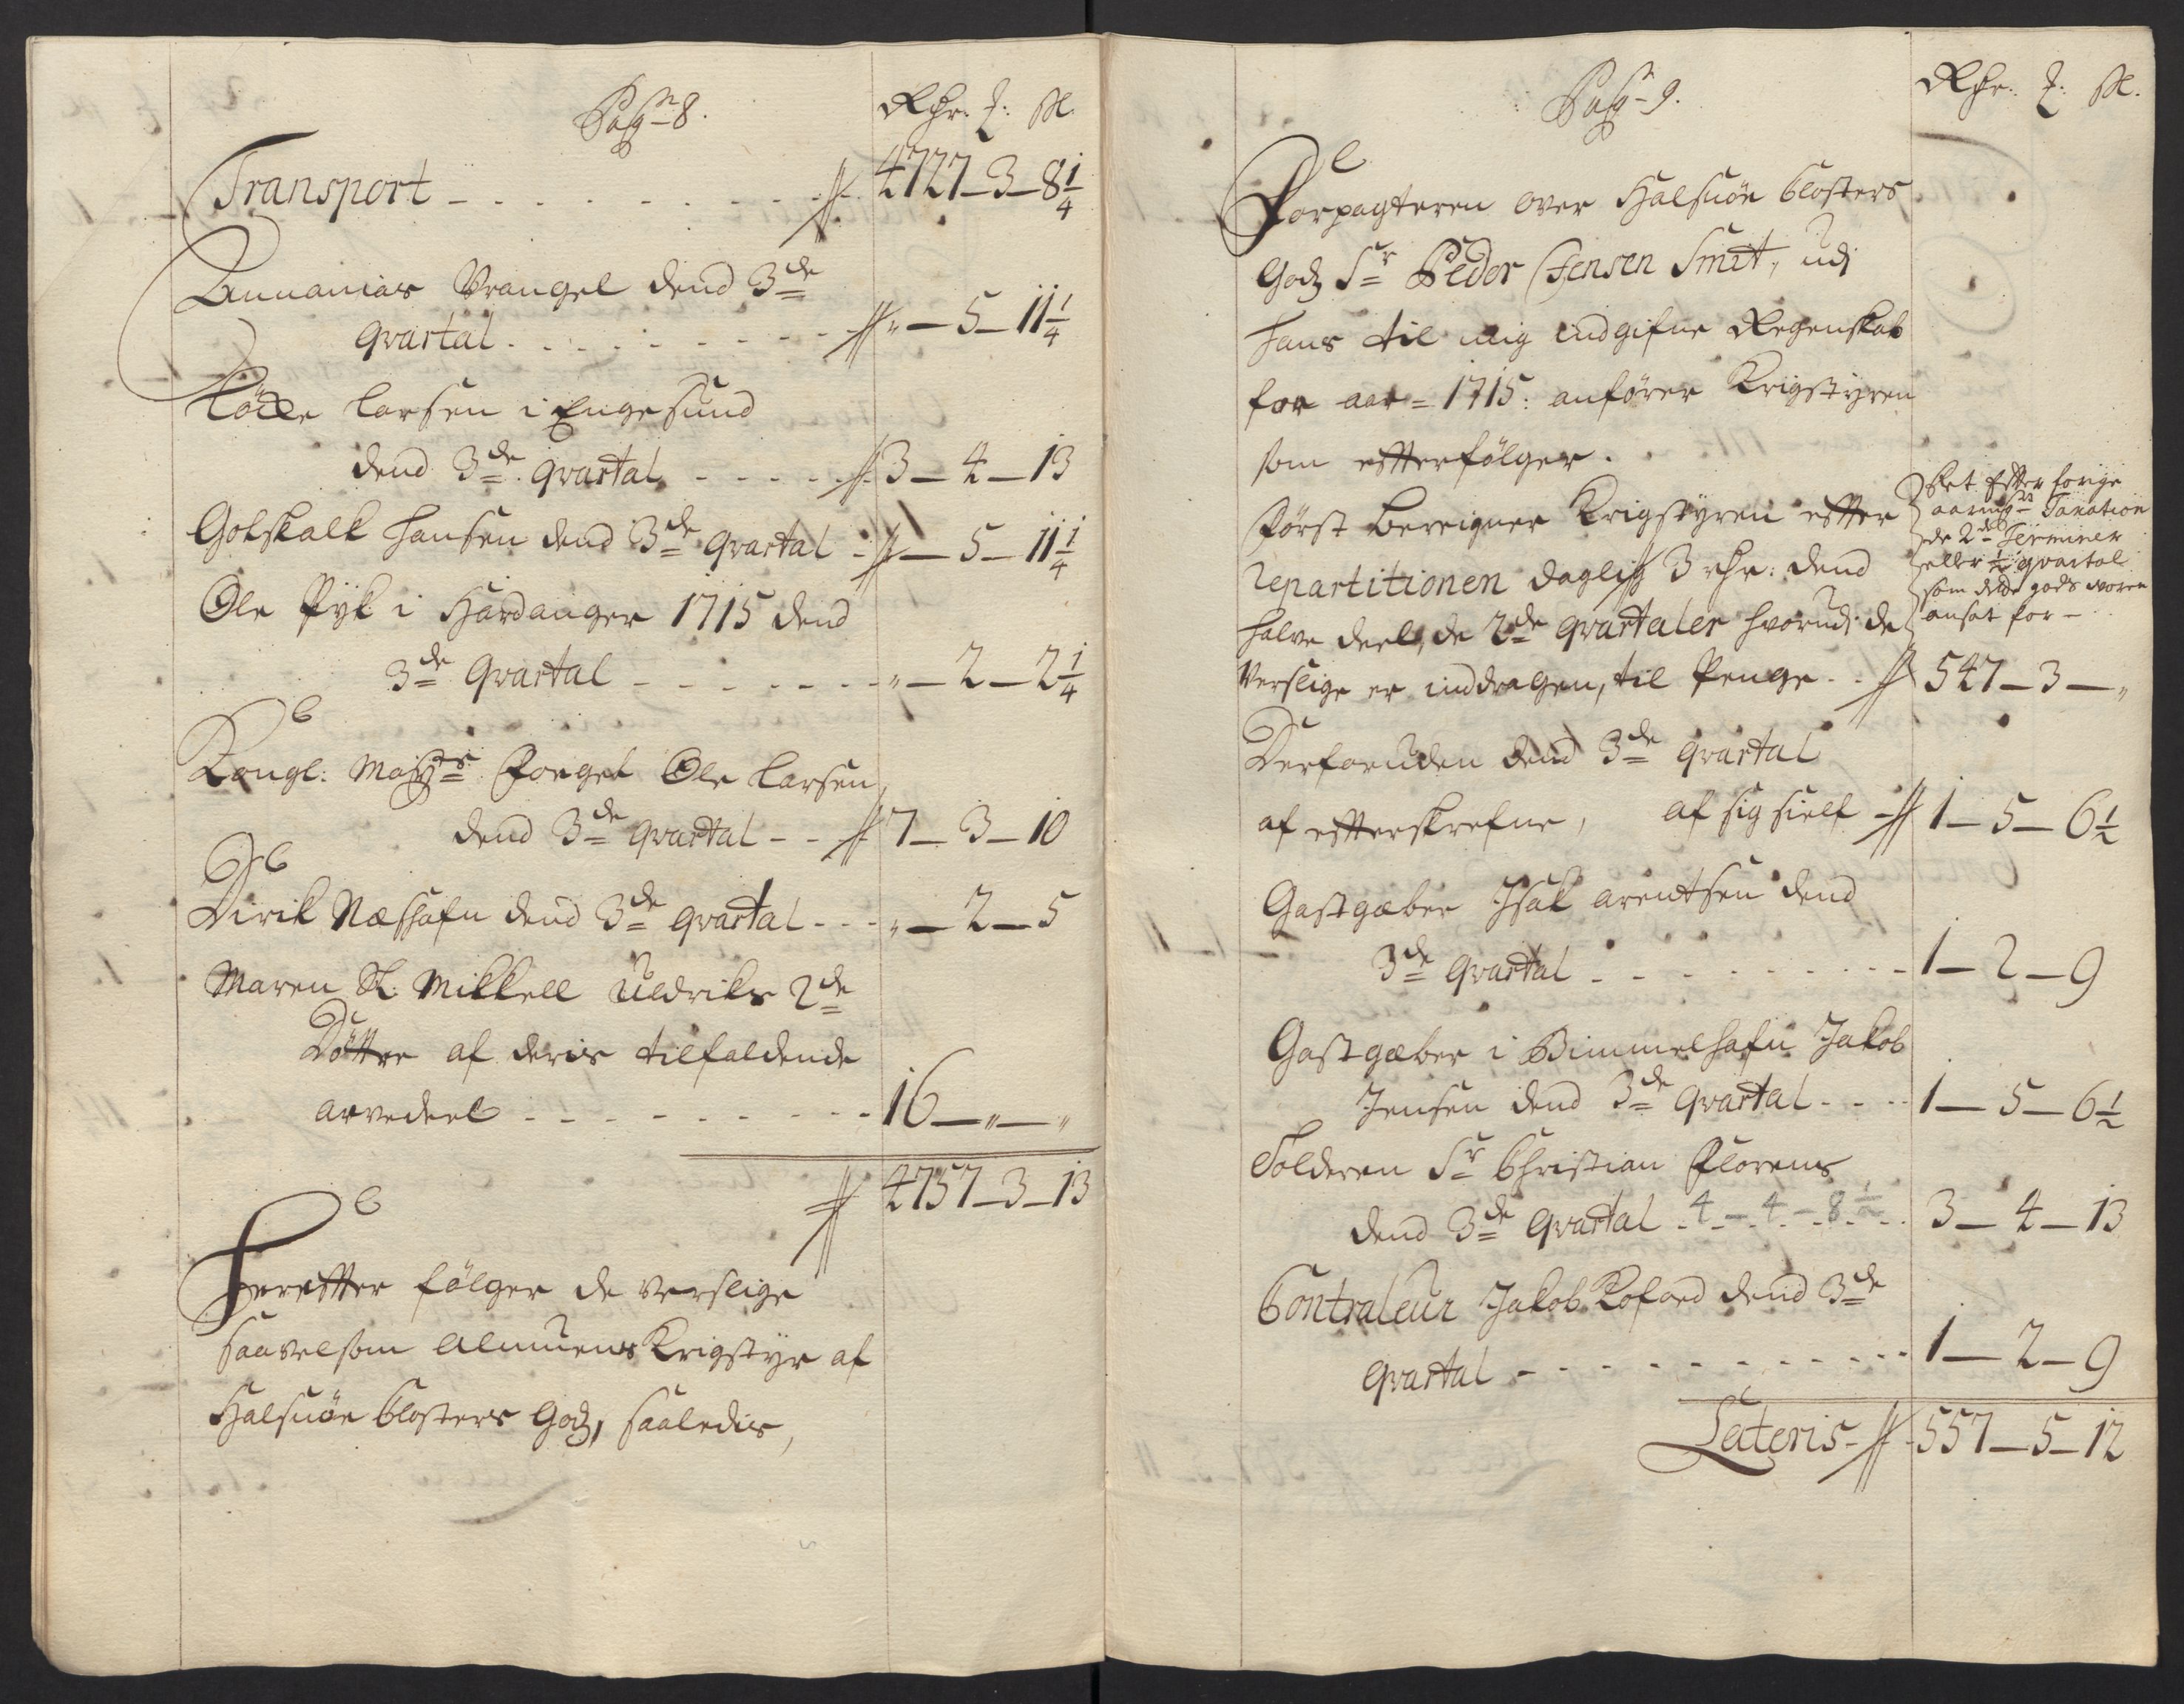 Pag: 8.
Rdr. ₰: S.
Transport - - - 4727 - 3 - 8 1/4
Annanias Vrangel dend 3de
qvartal - - - " - 5 - 11 1/4
Larsen i Engesund
dend 3de qvartal - - - 3 - 4 - 13
Gotskalk Hansen dend 3de qvartal - " - 5 - 11 1/4
Ole Pyk i Hardanger 1715 dend
3de Qvartal - - - " - 2 - 2 1/4
Kongl: Mayts Foeget Ole Larsen
dend 3de qvartal - - 7 - 3 - 10
Dirik Næshafn dend 3de qvartal - - - " - 2 - 5
Maren Sl: Mikkell Uldriks 2de
Døttre af deris tilfaldende
arvedeel - - - 16 - " - "
4757 - 3 - 13
Herefter følger de verslige
saavelsom Almuens Krigstyr af
Halsnøe Closters Godz, saaledis,
Pag: 9.
Rdr: ₰: S.
Forpagteren over Halsnøe Closters
Godz Sr Peder Jensen Smit, udi
hans til mig indgifne Regenskab
for aar = 1715: anfører Krigstyren
som efterfølger.
Først Bereigner Krigstyren efter
repartitionen daglig 3 rdr: dend
halve deel, de 2de qvartaler hvorudi de
Verslige er inddragen, til Penge - - 547 - 3 - "
Ret efter forige
aarings Taxation
de 2de Terminer
eller 1/2 qvartal
som dette gods vorre
ansat for -
Derforuden dend 3de qvartal
af efterskrefne, af sig sielf - 1 - 5 - 6 1/2
Gastgæber Isak arentsen dend
3de qvartal - - - 1 - 2 - 9
Gastgæber i Bimmelhafn Jakob
Jensen dend 3de qvartal - - - 1 - 5 - 6 1/2
Tolderen Sr Christian Florens
dend 3de qvartal 4 - 4 - 8 1/2 3 - 4 - 13
Contraleur Jakob Kofoed dend 3de
qvartal - - - 1 - 2 - 9
Lateris - 557 - 5 - 12